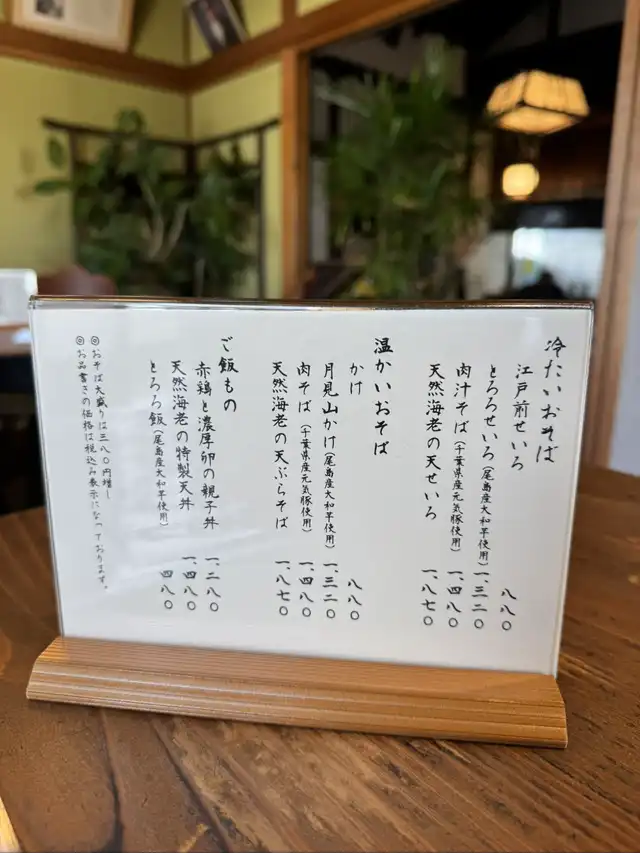 冷たいおそば
江戸前せいろ 八八〇
とろろせいろ(尾島産大和芋使用) 一、三二〇
肉汁そば(千葉県産元気豚使用) 一、四八〇
天然海老の天せいろ 一、八七〇
温かいおそば
かけ 八八〇
月見山かけ(尾島産大和芋使用) 一、三二〇
肉そば(千葉県産元気豚使用) 一、四八〇
天然海老の天ぷらそば 一、八七〇
ご飯もの
赤鶏と濃厚卵の親子丼 一、二八〇
天然海老の特製天丼 一、四八〇
とろろ飯(尾島産大和芋使用) 四八〇
◎おそば大盛りは三八〇円増し
◎お品書きの価格は税込み表示になっております。